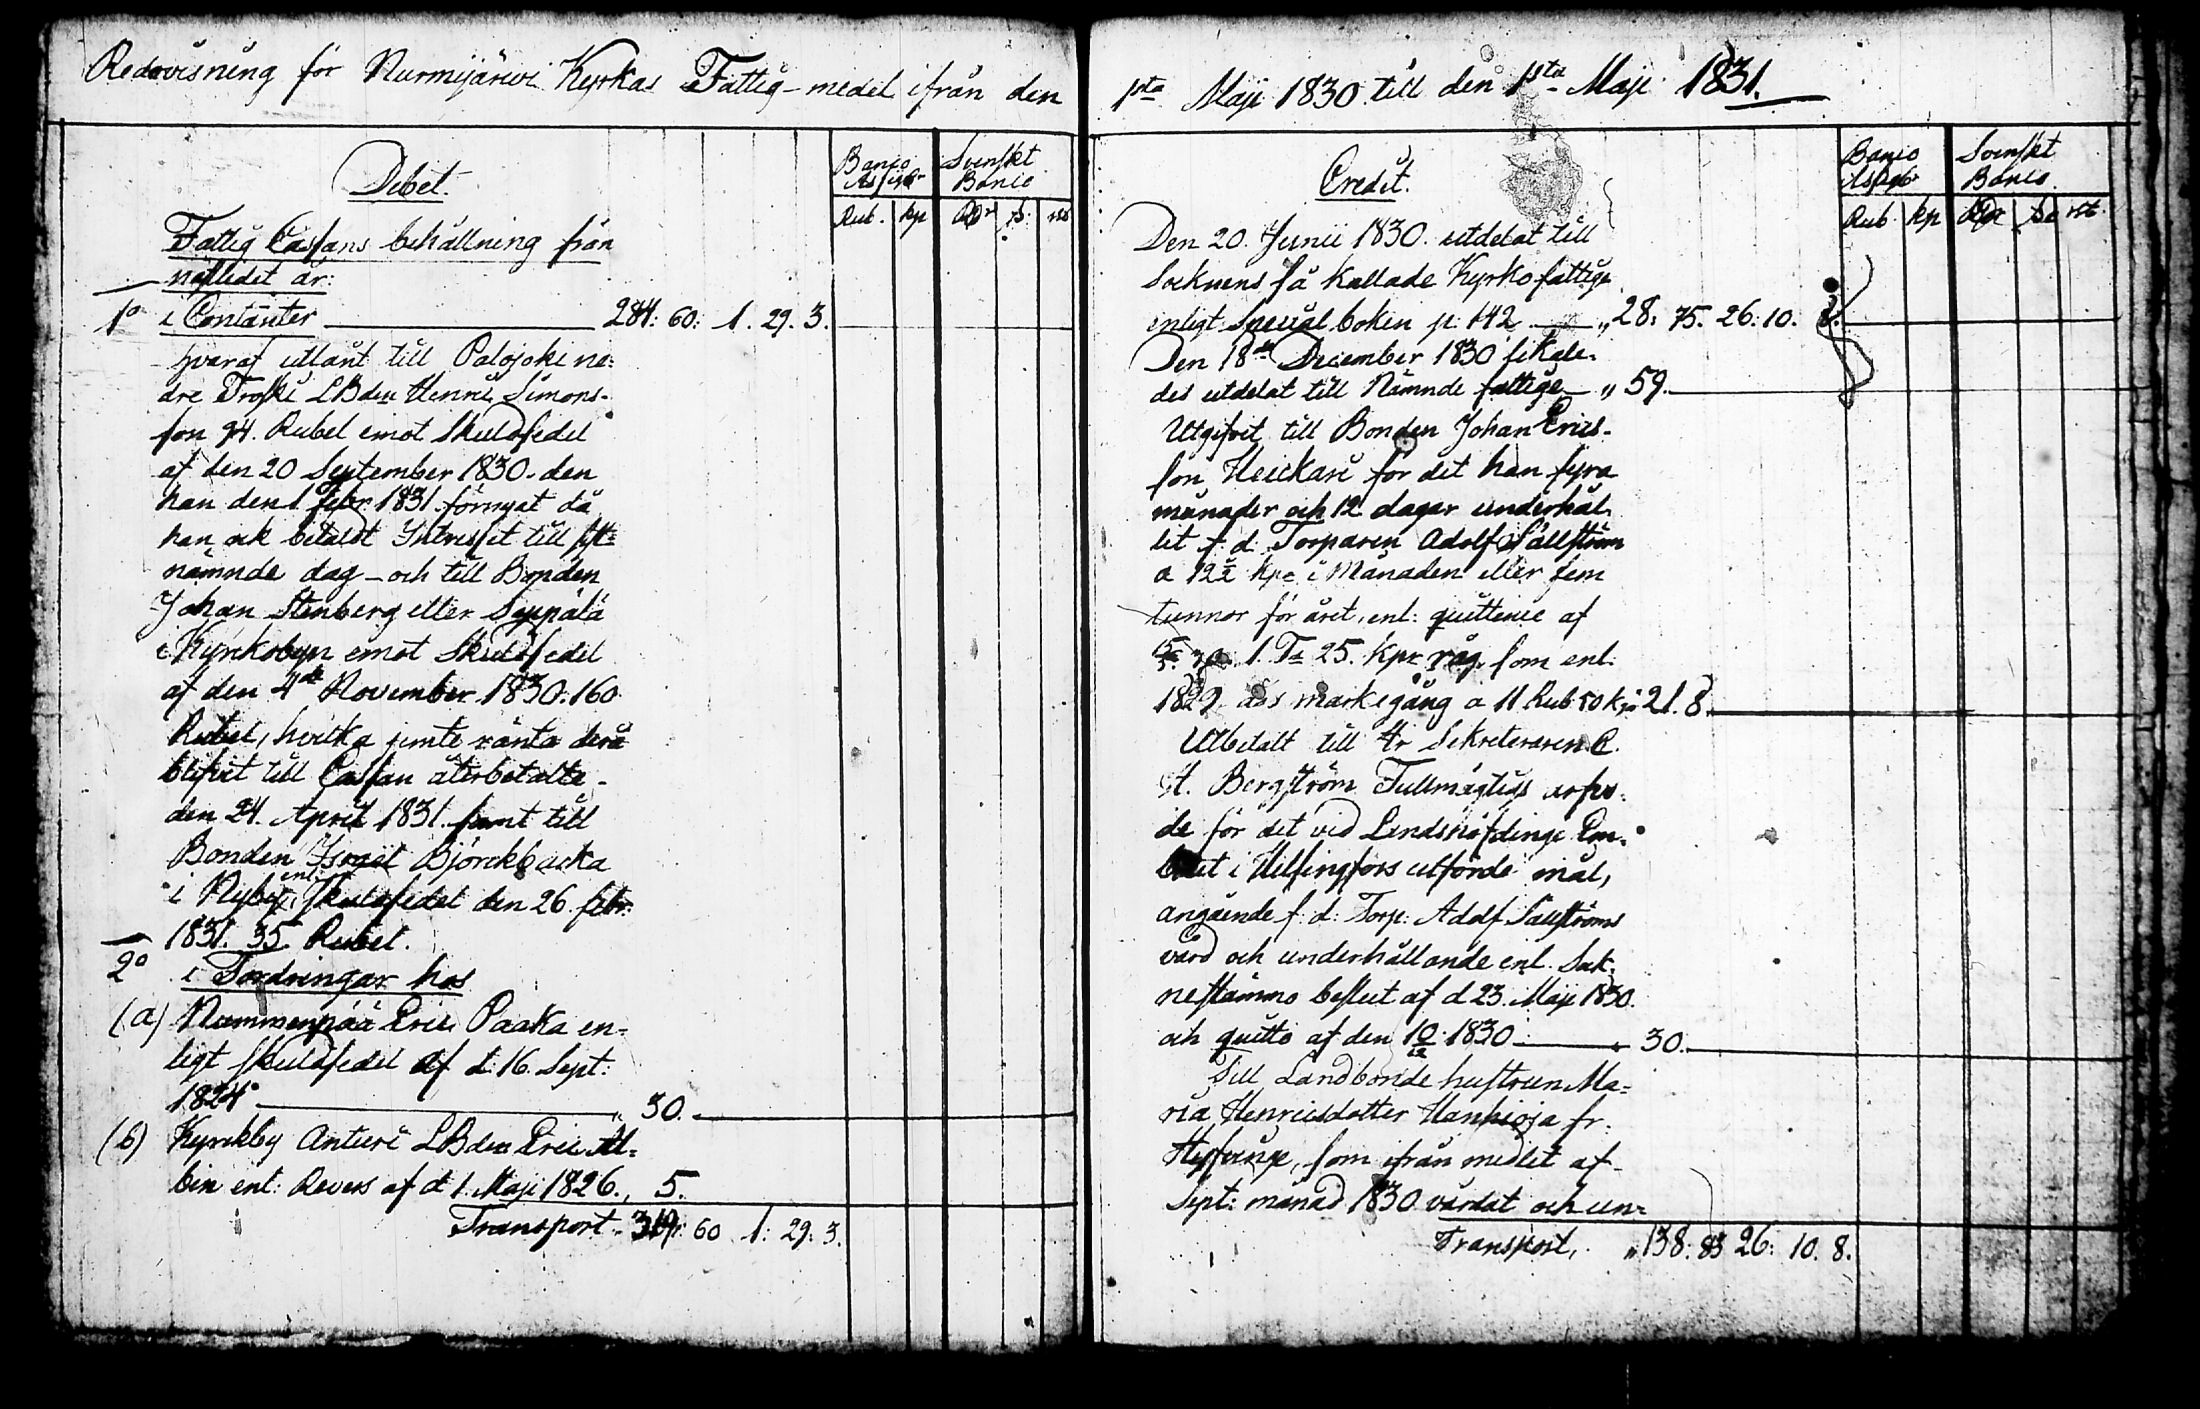 Redovisning för Nurmijärwi Kyrkas Fattig-medel ifrån den
Debet.
Banco Assign:r
Svenskt Banco
Rub. kp Rd:r s: rst
Fattig Cassans behållning från
nästledet år:
1o i Contanter 284: 60: 1. 29. 3.
hvaraf utlånt till Palojoki ne:
dre Troski LBden Henric Simons-
son 94. Rubel emot Skuldsedel
af den 20 September 1830. den
han den 1 febr: 1831 förnyat då
han ock betaldt Intresset till sist-
nämnde dag - och till Bonden
Johan Stenberg eller Seppälä
i Kyrkobyn emot Skuldsedel
af den 4de November 1830. 160
Rubel, hvilka jemte ränta derå
blifvit till Cassan återbetalte
den 24. April 1831. samt till
Bonden Israël Björckbacka
i Nyby enl: Skuldsedel den 26. febr:
1831. 35. Rubel.
2o i Fordringar hos
(a) Nummenpää Eric Paaka en-
ligt skuldsedel af d. 16. Sept:
1824 " 30.
(b) Kyrckby Antieri LBden Eric Al-
bin enl: Revers af d 1. Maji 1826. " 5.
Transport - 319: 60 1: 29: 3.
1sta Maji 1830 till den 1sta Maji 1831.
Credit.
Banco Assign:r
Svenskt Banco.
Rub kp Rdr s: rst.
Den 20. Junii 1830. utdelat till
Soknens så kallade Kyrkofattige
enligt Special boken p: 142 " 28: 75. 26: 10. 8.
Den 18de December 1830 likale-
des utdelat till Nämnde fattige " 59.
Utgifvit till Bonden Johan Erics-
son Heickari för det han fyra
månader och 12 dagar underhål-
lit f: d: Torparen Adolf Sällström
a 12½ kpr i Månaden eller fem
tunnor för året, enl: quittence af
1. Ta 25. kpr råg, som enl:
1829 års markegång a 11 Rub 50 kp " 21. 8.
Utbetalt till Hr Sekreteraren C.
H. Bergström Fullmägtigs arfvo-
de för det vid Landshöfdinge Em-
betet i Helsingfors utförde mål,
angående f: d: Torp: Adolf Sällströms
vård och underhållande enl. Sok-
nestämmo beslut af d 23. Maji 1830.
och quitto af den 10/12 1830 " 30.
Till Landbonde hustrun Ma-
ria Henricsdotter Hanhioja fr:
som ifrån medlet af
Sept: månad 1830 vårdat och un-
Transport, " 138. 83 26: 10. 8.